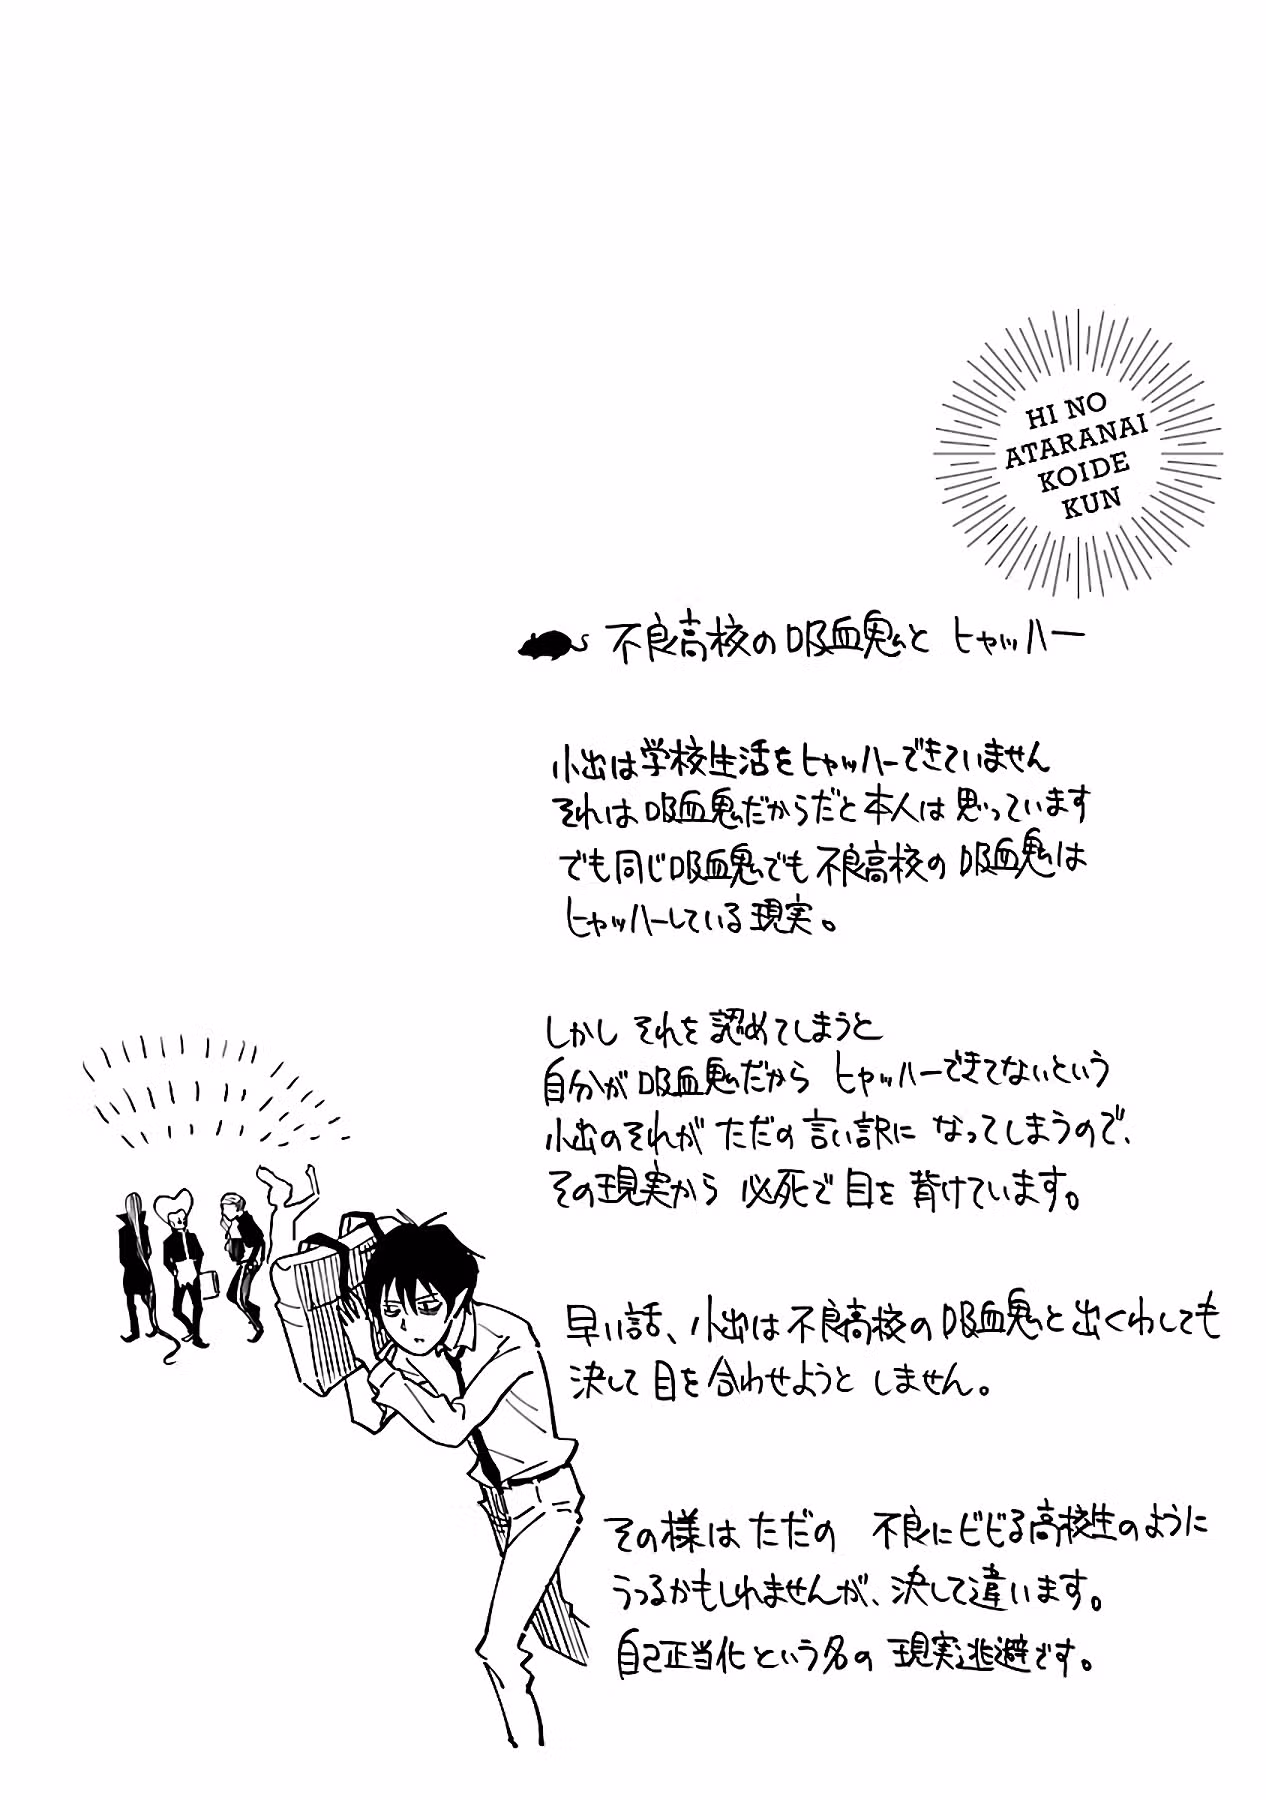 HI NO
ATARANAI
KOIDE
KUN
不良高校の吸血鬼と ヒャッハー
小出は学校生活をヒャッハーできていません
それは吸血鬼だからだと本人は思っています
でも同じ吸血鬼でも不良高校の吸血鬼は
ヒャッハーしている現実。
しかし それを認めてしまうと
自分が吸血鬼だから ヒャッハーできてないという
小出のそれが ただの言い訳に なってしまうので、
その現実から 必死で目を背けています。
早い話、小出は不良高校の吸血鬼と出くわしても
決して目を合わせようと しません。
その様は ただの 不良にビビる高校生のように
うつるかもしれませんが、決して違います。
自己正当化という名の 現実逃避です。